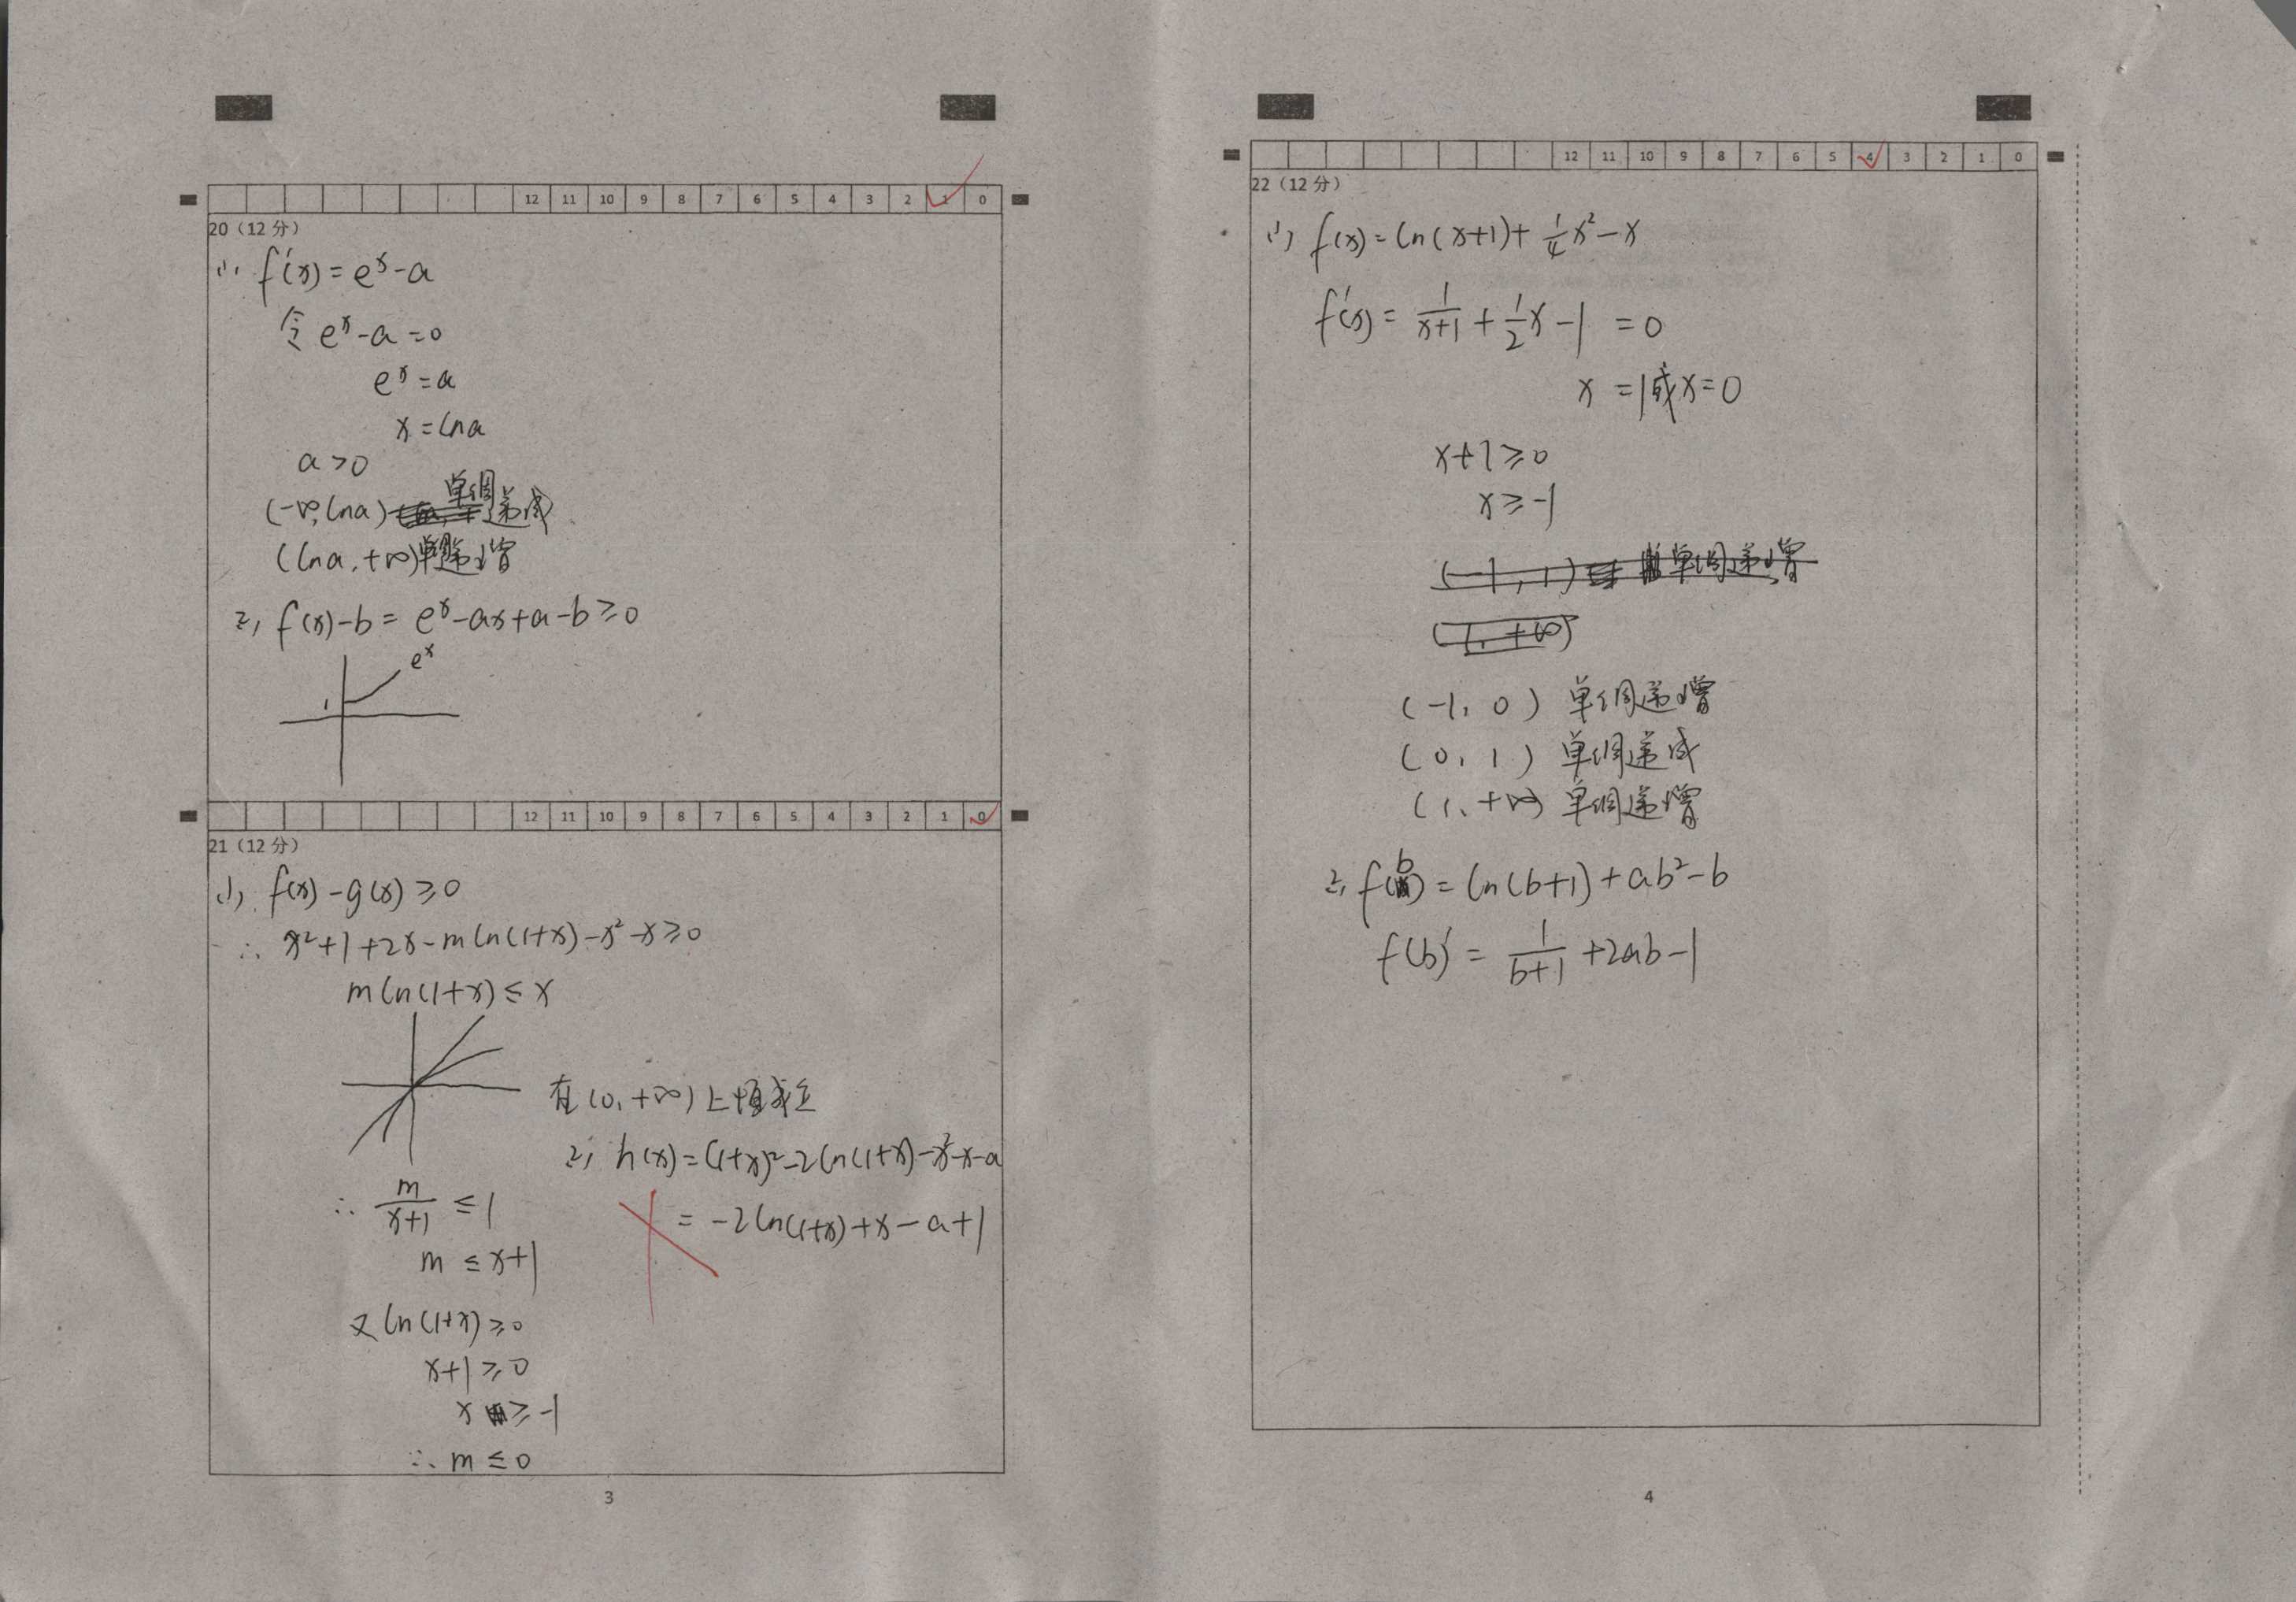 12 11 10 9 8 7 6 5 4 3 2 1 0
20（12 分）
(1) f'(x)=e^x-a
令 e^x-a=0
e^x=a
x=lna
a>0
(-∞,lna) 单调递减
(lna,+∞)单调递增
2, f(x)-b=e^x-ax+a-b≥0
e^x
1
12 11 10 9 8 7 6 5 4 3 2 1 0
21（12 分）
(1), f(x)-g(x)≥0
∴ x²+1+2x-mln(1+x)-x²-x≥0
mln(1+x)≤x
在(0,+∞)上恒成立
∴ m/(x+1) ≤1
m≤x+1
又ln(1+x)≥0
x+1≥0
x≥-1
∴m≤0
2, h(x)=(1+x)²-2ln(1+x)-x²-x-a
=-2ln(1+x)+x-a+1
3
12 11 10 9 8 7 6 5 4 3 2 1 0
22（12 分）
(1) f(x)=ln(x+1)+1/4x²-x
f'(x)=1/(x+1)+1/2x-1=0
x=1或x=0
x+1≥0
x≥-1
(-1,1) 单调递增
(1,+∞)
(-1,0) 单调递增
(0,1) 单调递减
(1,+∞) 单调递增
2, f(b)=ln(b+1)+ab²-b
f(b)'=1/(b+1)+2ab-1
4